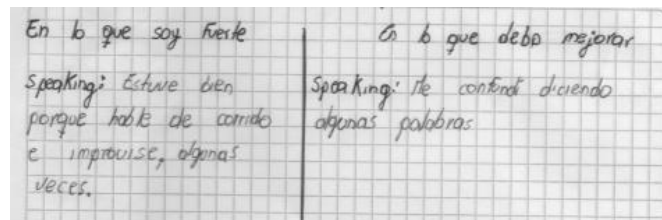 En lo que soy fuerte
Speaking: Estuve bien
porque hable de corrido
e improvise, algunas
veces.
En lo que debo mejorar
Speaking: Me confundí diciendo
algunas palabras